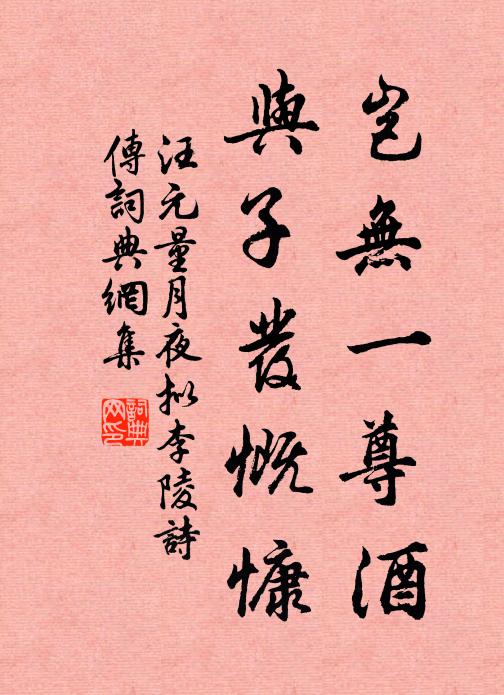 豈無一尊酒
與子發慨慷
汪元量月夜拟李陵詩
傳詞典網集
詞典网印